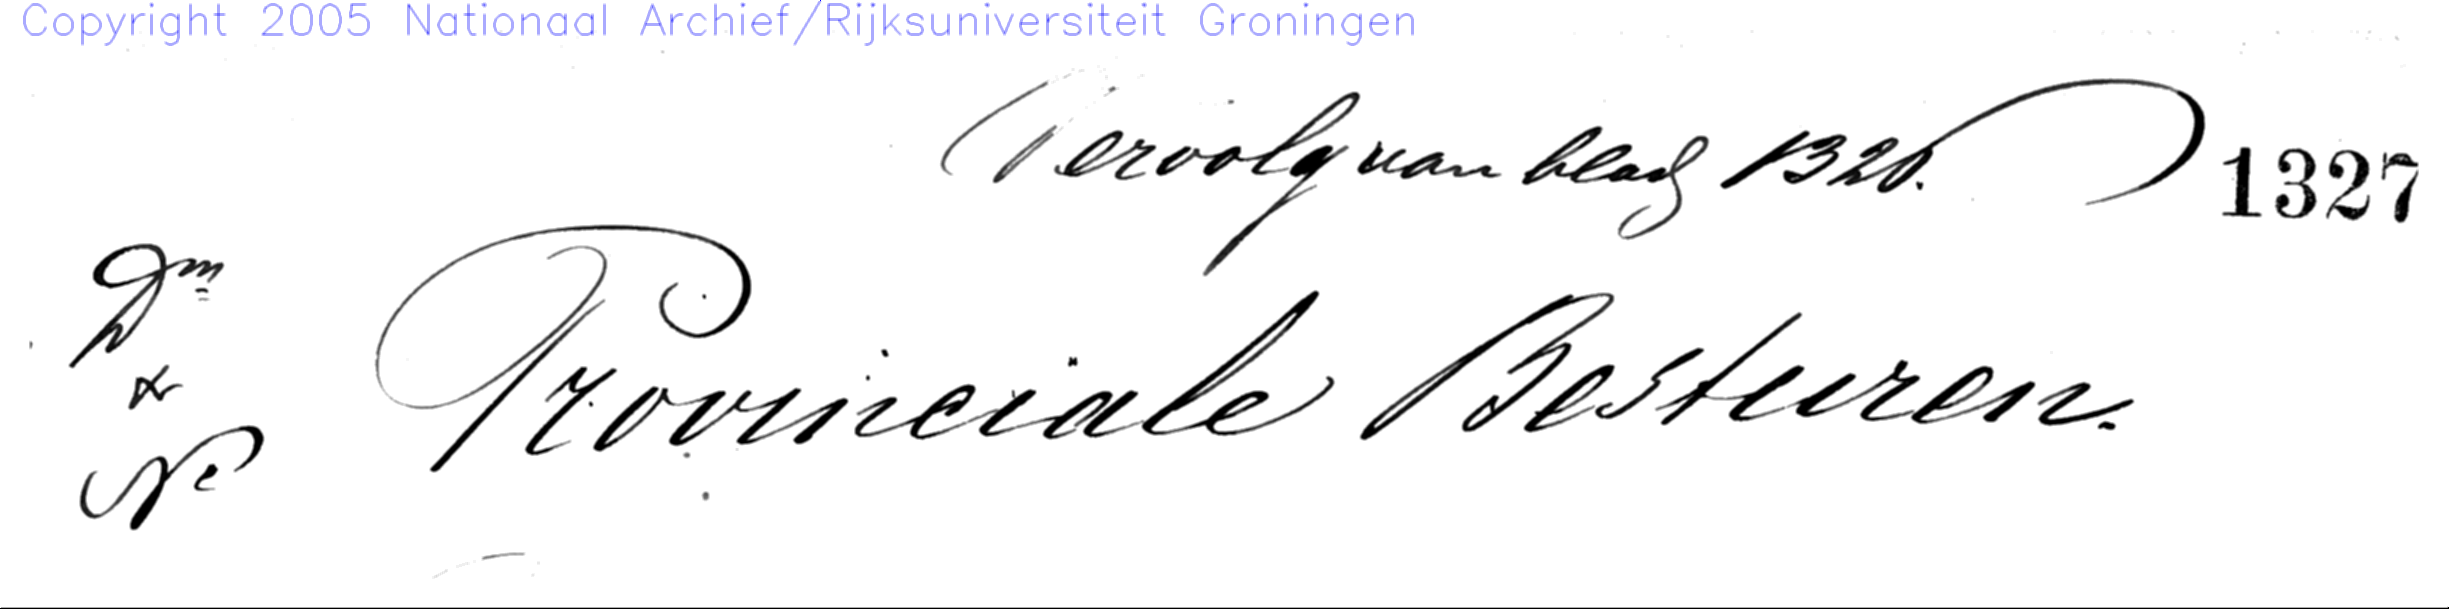 Copyright 2005 Nationaal Archief/Rijksuniversiteit Groningen
Vervolg van bladz 1320. 1327
Dm
&
No
Provinciale Besturen.